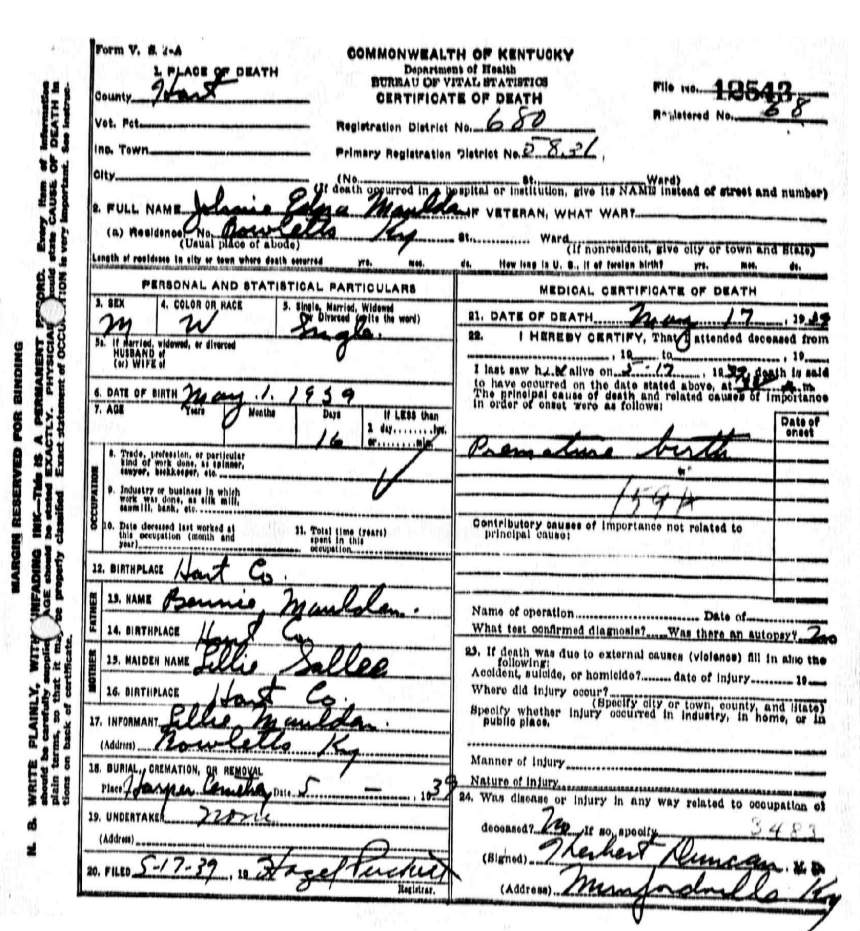 Form V. S. 1-A
COMMONWEALTH OF KENTUCKY
Department of Health
BUREAU OF VITAL STATISTICS
CERTIFICATE OF DEATH
File No. 12543
Registered No. 68
1. PLACE OF DEATH
County Hart
Vot. Pct.
Inc. Town
City
Registration District No. 680
Primary Registration District No. 5831
(No. St. Ward)
(If death occurred in a hospital or institution, give its NAME instead of street and number)
2. FULL NAME Johnie Edna Mauldan IF VETERAN, WHAT WAR?
(a) Residence. No. Rowletts Ky St. Ward
(Usual place of abode) (If nonresident, give city or town and State)
Length of residence in city or town where death occurred yrs. mos. ds. How long in U. S., if of foreign birth? yrs. mos. ds.
PERSONAL AND STATISTICAL PARTICULARS
3. SEX M
4. COLOR OR RACE W
5. Single, Married, Widowed or Divorced (write the word) Single
5a. If married, widowed, or divorced
HUSBAND of
(or) WIFE of
6. DATE OF BIRTH May. 1. 1939
7. AGE Years Months Days If LESS than
16 1 day, hrs.
or min.
OCCUPATION
8. Trade, profession, or particular
kind of work done, as spinner,
sawyer, bookkeeper, etc.
9. Industry or business in which
work was done, as silk mill,
sawmill, bank, etc.
10. Date deceased last worked at
this occupation (month and
year)
11. Total time (years)
spent in this
occupation
12. BIRTHPLACE Hart Co.
FATHER
13. NAME Bennie Mauldan.
14. BIRTHPLACE Hart Co.
MOTHER
15. MAIDEN NAME Lillie Sallee
16. BIRTHPLACE Hart Co.
17. INFORMANT Lillie Mauldan.
(Address) Rowletts Ky
18. BURIAL, CREMATION, OR REMOVAL
Place Harper Cemetery Date 5 - , 1939
19. UNDERTAKER none
(Address)
20. FILED 5-17-39, 19 Hazel Puckett
Registrar.
MEDICAL CERTIFICATE OF DEATH
21. DATE OF DEATH May 17, 1939
22. I HEREBY CERTIFY, That I attended deceased from
, 19 to , 19
I last saw him alive on 5-17, 1939, death is said
to have occurred on the date stated above, at m
The principal cause of death and related causes of importance
in order of onset were as follows:
Date of
onset
Premature birth
159A
Contributory causes of importance not related to
principal cause:
Name of operation Date of
What test confirmed diagnosis? Was there an autopsy? No
23. If death was due to external causes (violence) fill in also the
following:
Accident, suicide, or homicide? date of injury 19
Where did injury occur?
(Specify city or town, county, and State)
Specify whether injury occurred in industry, in home, or in
public place.
Manner of injury
Nature of injury
24. Was disease or injury in any way related to occupation of
deceased? No If so, specify 3483
(Signed) Herbert Duncan, M D
(Address) Munfordville Ky
MARGIN RESERVED FOR BINDING
N. B. WRITE PLAINLY, WITH UNFADING INK—This IS A PERMANENT RECORD. Every item of information
should be carefully supplied. AGE should be stated EXACTLY. PHYSICIANS should state CAUSE OF DEATH in
plain terms, so that it may be properly classified. Exact statement of OCCUPATION is very important. See instruc-
tions on back of certificate.